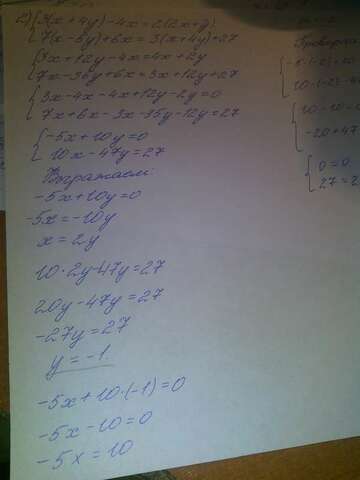 2) { 3(x+4y)-4x=2(2x+y)
7(x-5y)+6x=3(x+4y)+27
{ 3x+12y-4x=4x+2y
7x-35y+6x=3x+12y+27
{ 3x-4x-4x+12y-2y=0
7x+6x-3x-35y-12y=27
{ -5x+10y=0
10x-47y=27
Выражаем
-5x+10y=0
-5x=-10y
x=2y
10·2y-47y=27
20y-47y=27
-27y=27
y=-1.
-5x+10·(-1)=0
-5x-10=0
-5x=10
{ 0=0